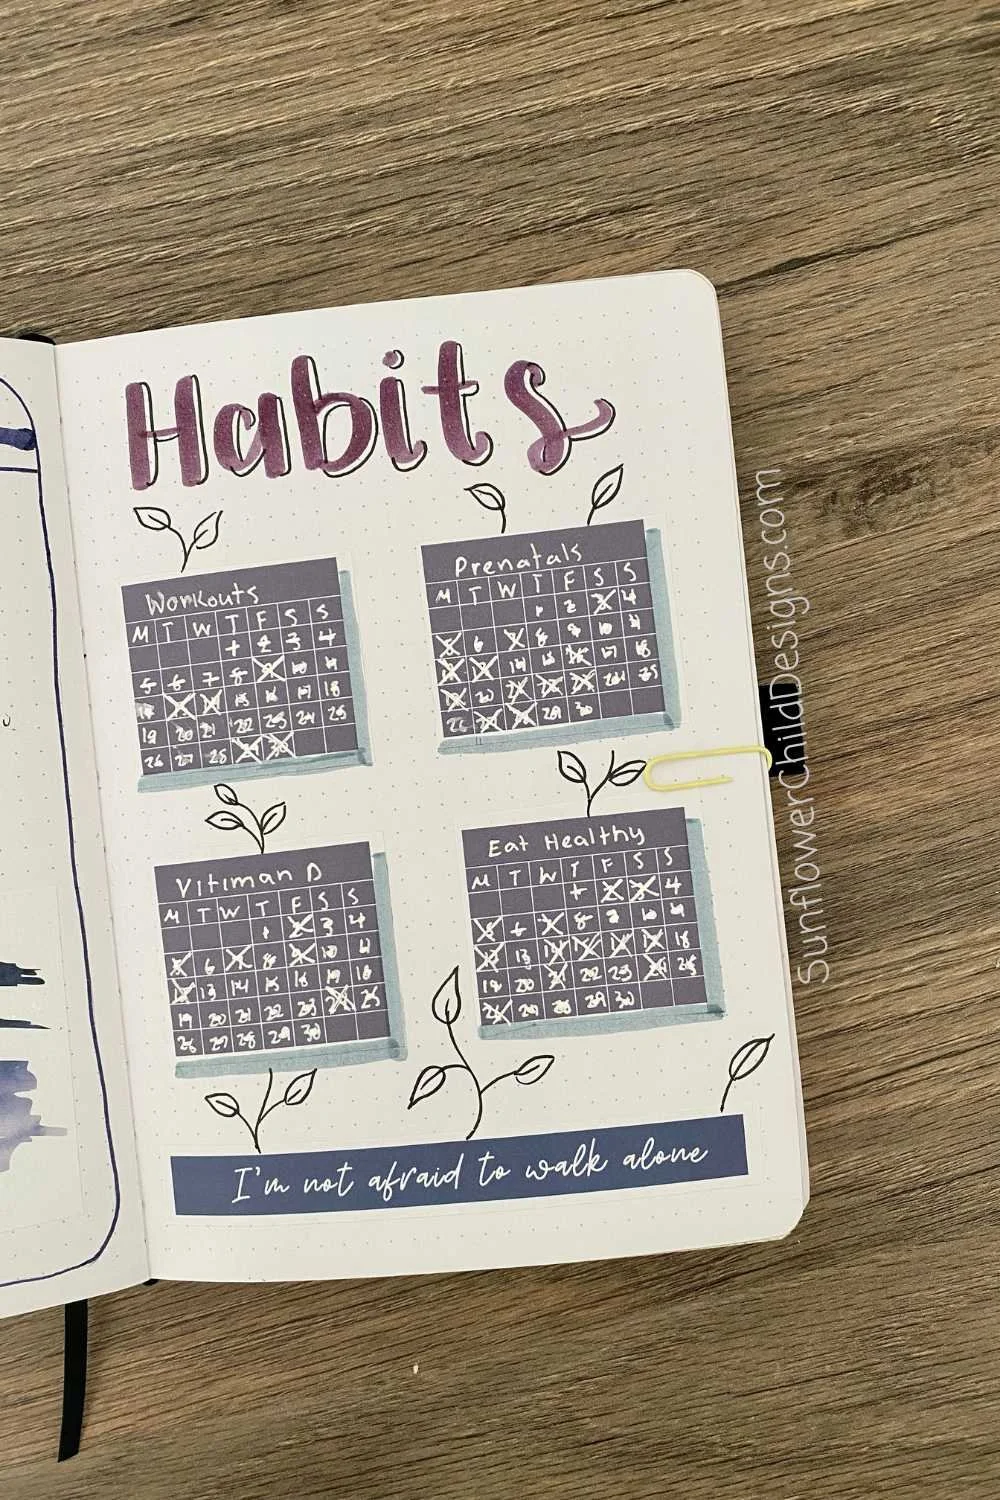 Habits
Workouts
M T W T F S S
1 2 3 4
5 6 7 8 10 11
15 16 17 18
19 20 21 22 23 24 25
26 27 28
Prenatals
M T W T F S S
1 2 4
6 8 9 10 11
14 15 17 18
20 24 25
26 29 30
Vitiman D
M T W T F S S
1 3 4
6 8 10 11
13 14 15 16 17 18
19 20 21 22 23 25
26 27 28 29 30
Eat Healthy
M T W T F S S
1 4
6 8 9 10 11
13 18
19 20 22 23 25
27 28 29 30
I'm not afraid to walk alone
SunflowerChildDesigns.com